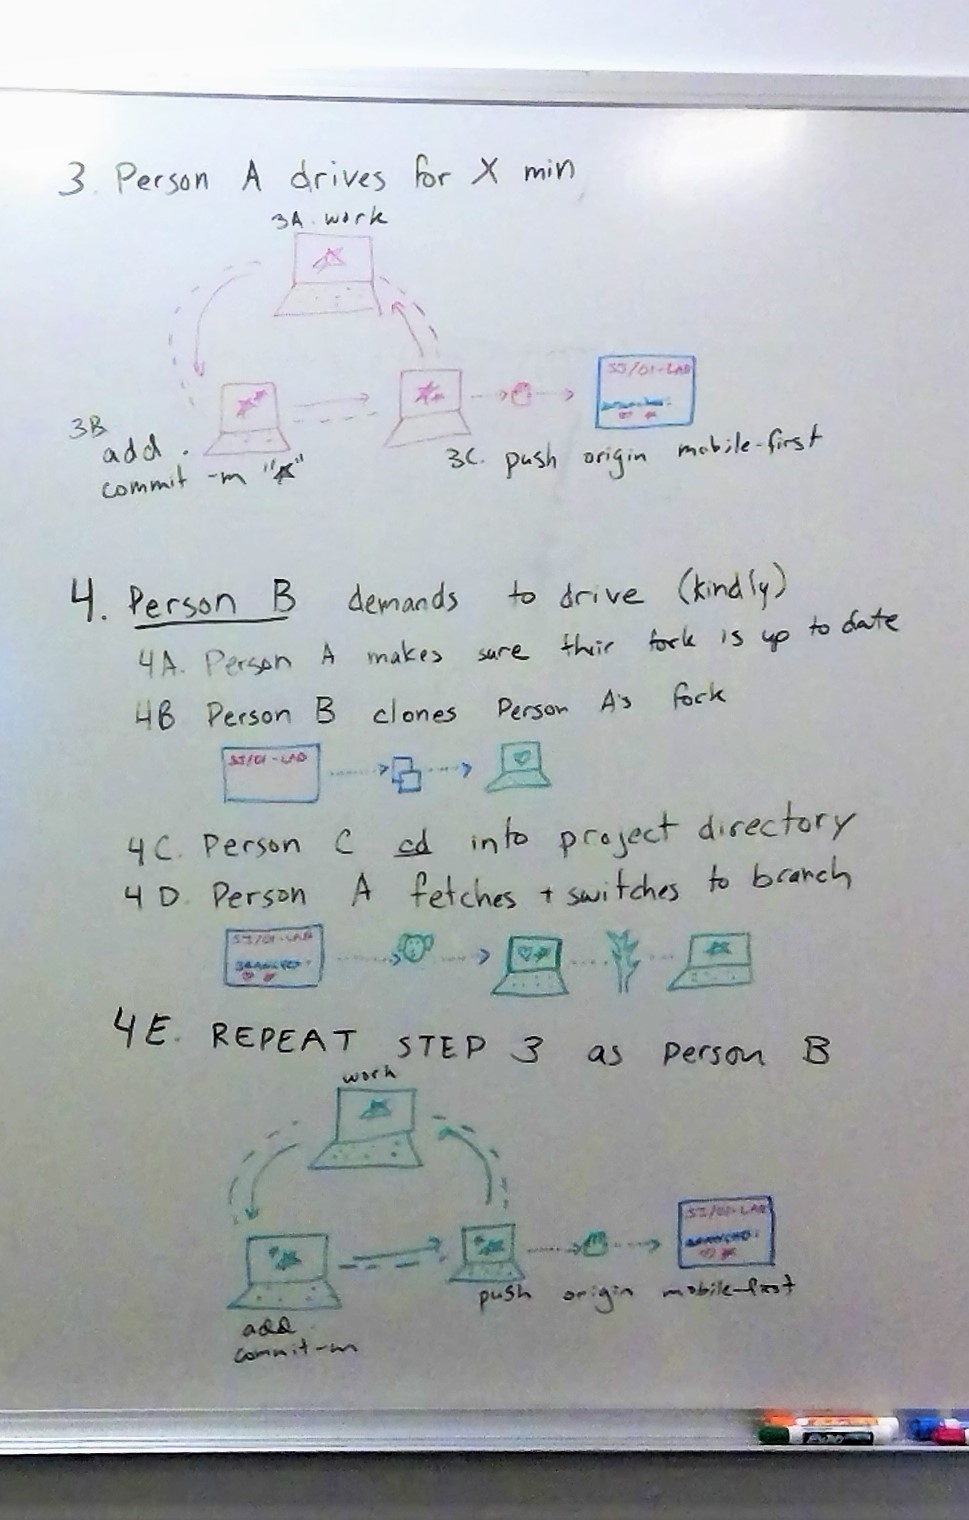 3. Person A drives for X min
3A. work
SJ/01-LAB
3B
add .
commit -m "★"
3C. push origin mobile-first
4. Person B demands to drive (kindly)
4A. Person A makes sure their fork is up to date
4B Person B clones Person A's fork
SJ/01-LAB
4C. Person C cd into project directory
4D. Person A fetches + switches to branch
SJ/01-LAB
BRANCHES:
4E. REPEAT STEP 3 as Person B
work
SJ/01-LAB
BRANCHES:
push origin mobile-first
add .
commit -m